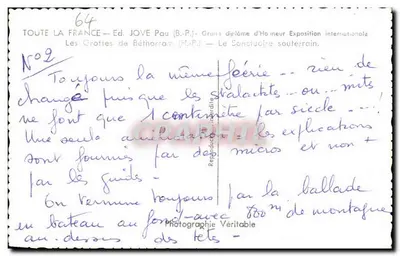 64
TOUTE LA FRANCE - Ed. JOVE Pau (B.-P.) - Grand diplôme d'Honneur Exposition internationale
Les Grottes de Bétharram (B.-P.) - Le Sanctuaire souterrain.
N° 2
Toujours la même féérie -- rien de
changé puisque les stalactites -- ou .. mites
ne font que 1 centimètre par siècle ---.
Une seule amélioration : les explications
sont fournies par des micros et non +
par les guides -
On termine toujours par la ballade
en bateau au fond - avec 800 m de montagne
au-dessus des têtes -
Photographie Véritable